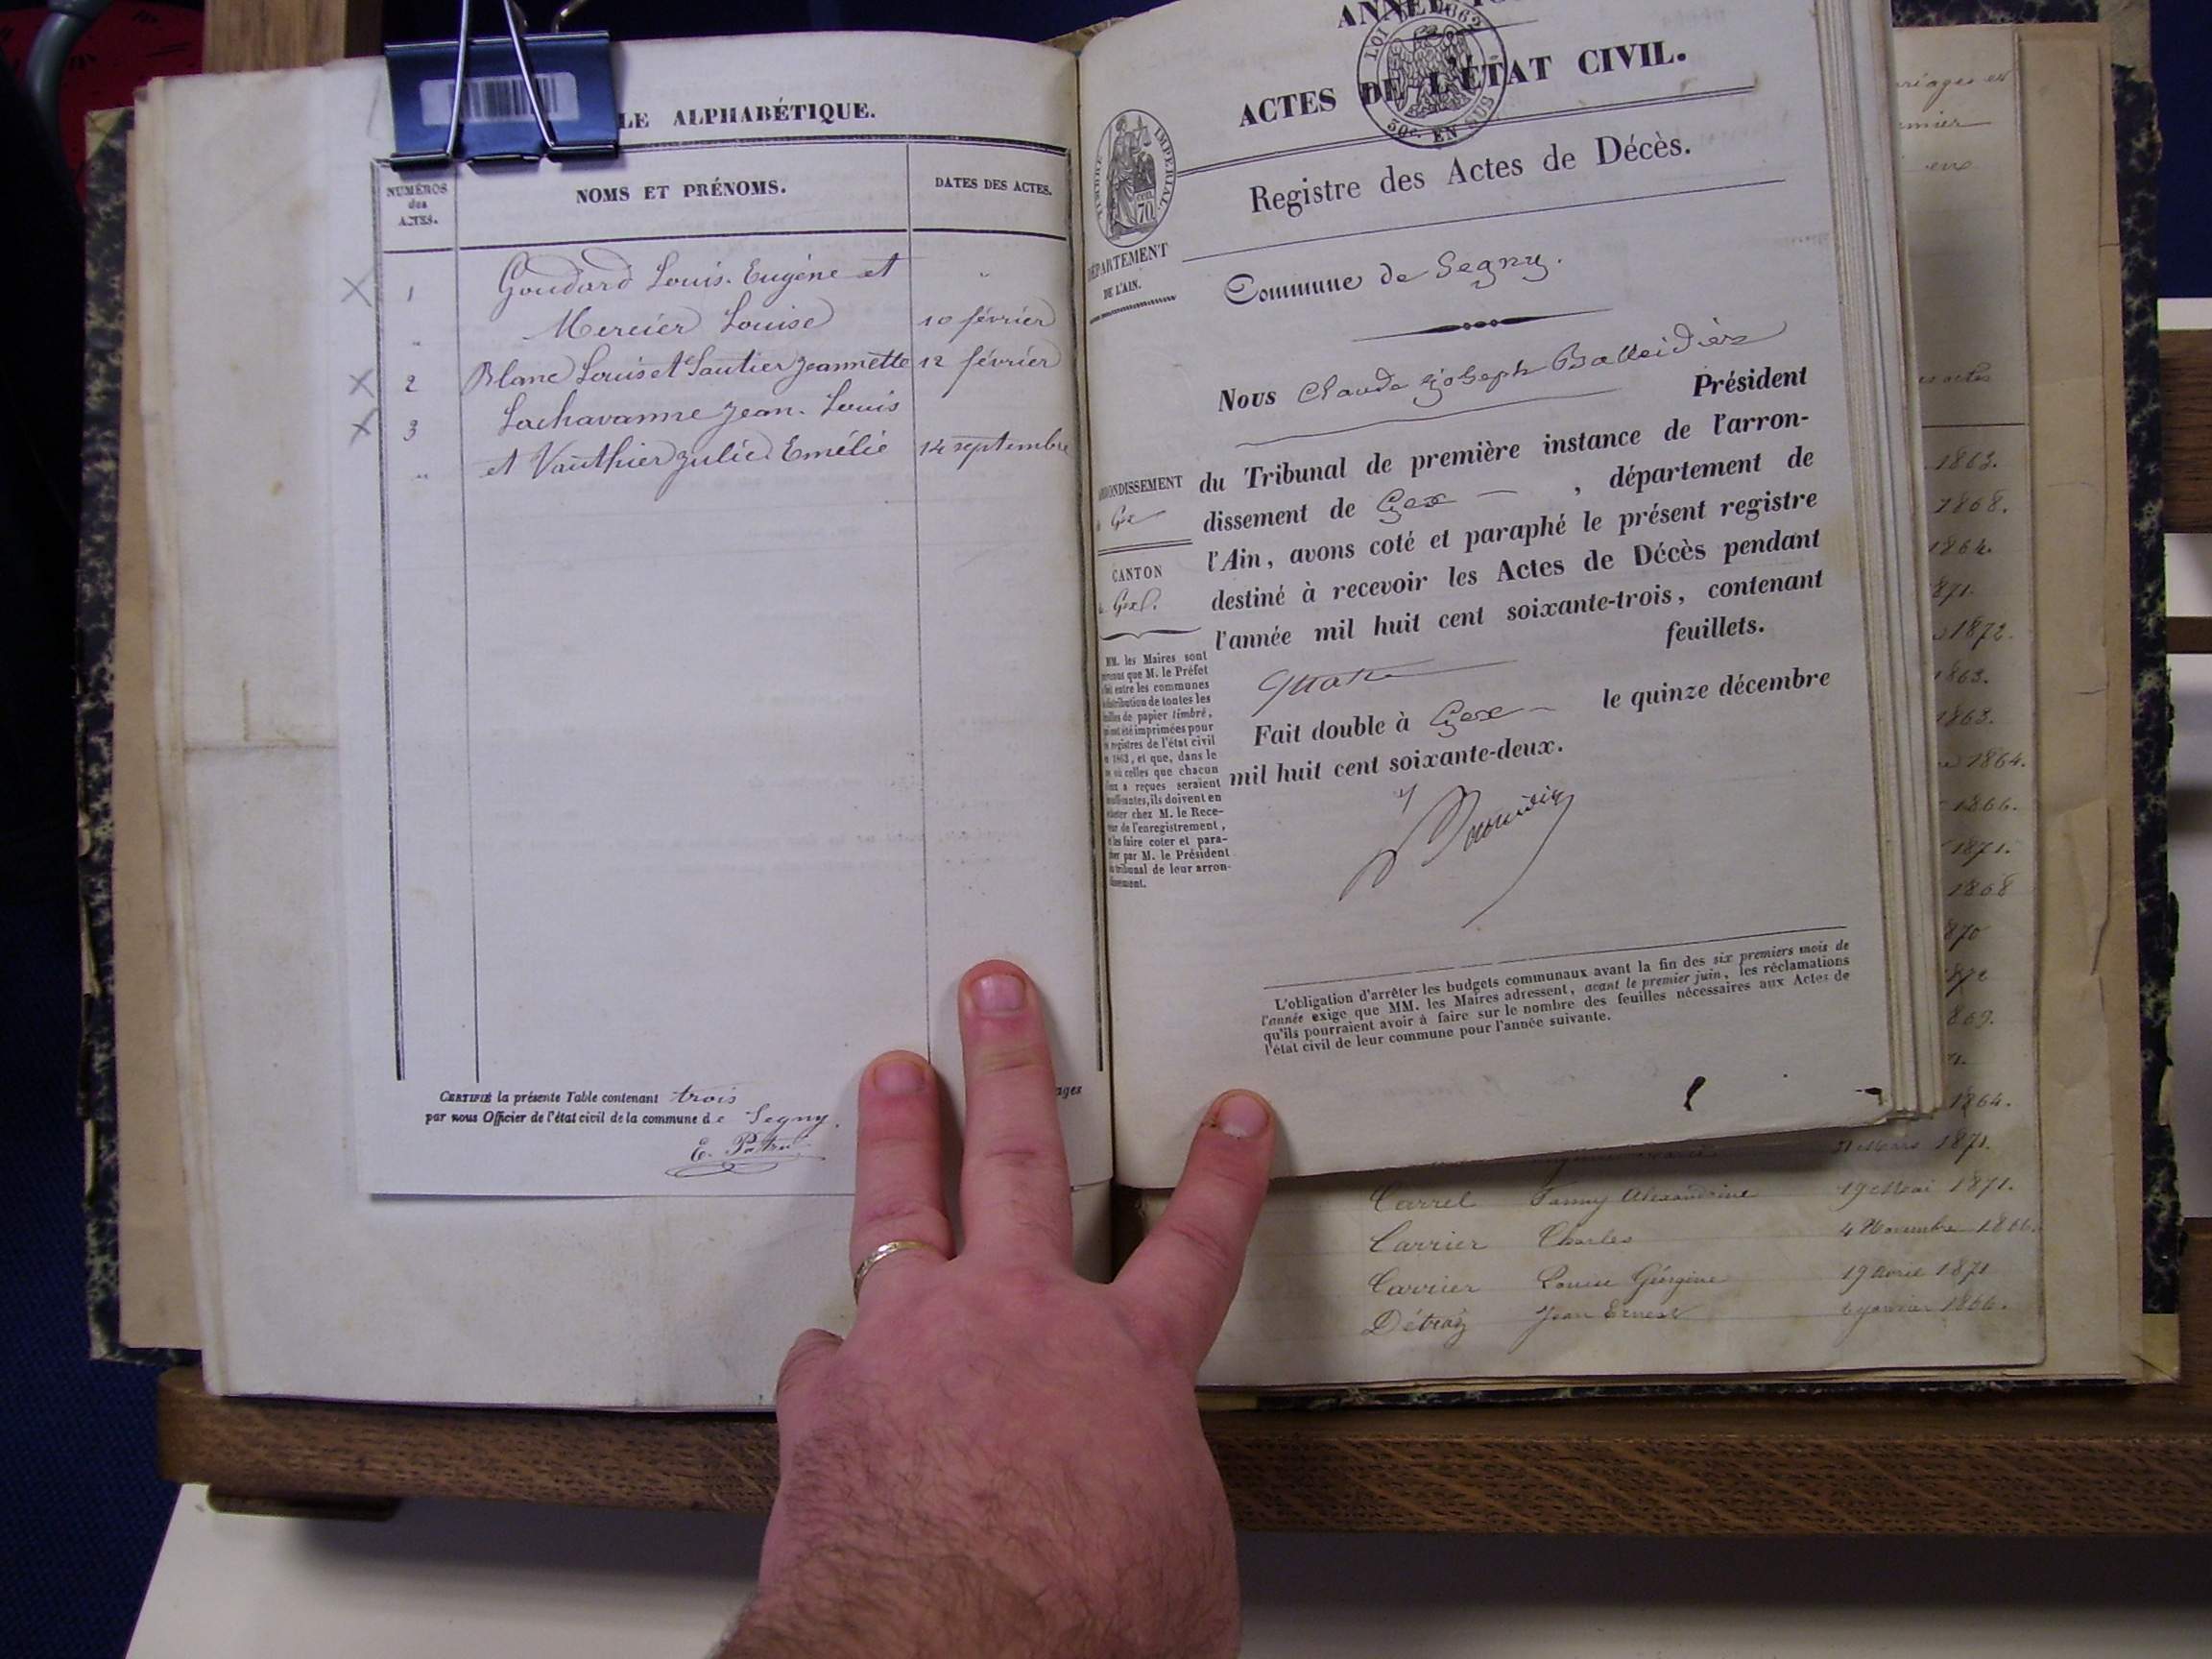 LE ALPHABÉTIQUE.
NUMÉROS
des
ACTES.
NOMS ET PRÉNOMS.
DATES DES ACTES.
1 Goudard Louis-Eugène et "
" Mercier Louise 10 février
2 Blanc Louis et Sautier Jeannette 12 février
3 Lachavanne Jean-Louis
" et Vauthier Julie Emélie 14 septembre
CERTIFIÉ la présente Table contenant trois
ages
par nous Officier de l'état civil de la commune de Segny.
ACTES DE L'ÉTAT CIVIL.
LOI DE 1862
30c. EN SUS
TIMBRE IMPÉRIAL
70
Registre des Actes de Décès.
DÉPARTEMENT
DE L'AIN.
Commune de Segny.
Nous Claude Joseph Balleidier
Président
du Tribunal de première instance de l'arron-
dissement de Gex , département de
l'Ain, avons coté et paraphé le présent registre
destiné à recevoir les Actes de Décès pendant
l'année mil huit cent soixante-trois, contenant
quatre feuillets.
Fait double à Gex le quinze décembre
mil huit cent soixante-deux.
ONDISSEMENT
Gex
CANTON
Gex.
MM. les Maires sont
que M. le Préfet
entre les communes
distribution de toutes les
de papier timbré,
été imprimées pour
registres de l'état civil
1863, et que, dans le
où celles que chacun
a reçues seraient
ils doivent en
chez M. le Rece-
de l'enregistrement,
les faire coter et para-
par M. le Président
tribunal de leur arron-
L'obligation d'arrêter les budgets communaux avant la fin des six premiers mois de
l'année exige que MM. les Maires adressent, avant le premier juin, les réclamations
qu'ils pourraient avoir à faire sur le nombre des feuilles nécessaires aux Actes de
l'état civil de leur commune pour l'année suivante.
1863.
1868.
1864.
871.
1872.
1863.
1868.
1864.
1866.
1871.
1868
870
872
869.
1864.
Mars 1871.
Carrel Fanny Alexandrine 19 Mai 1871.
Carrier Charles 4 Novembre 1866.
Carrier Louise Géorgine 19 Avril 1871
Détraz Jean Ernest janvier 1866.